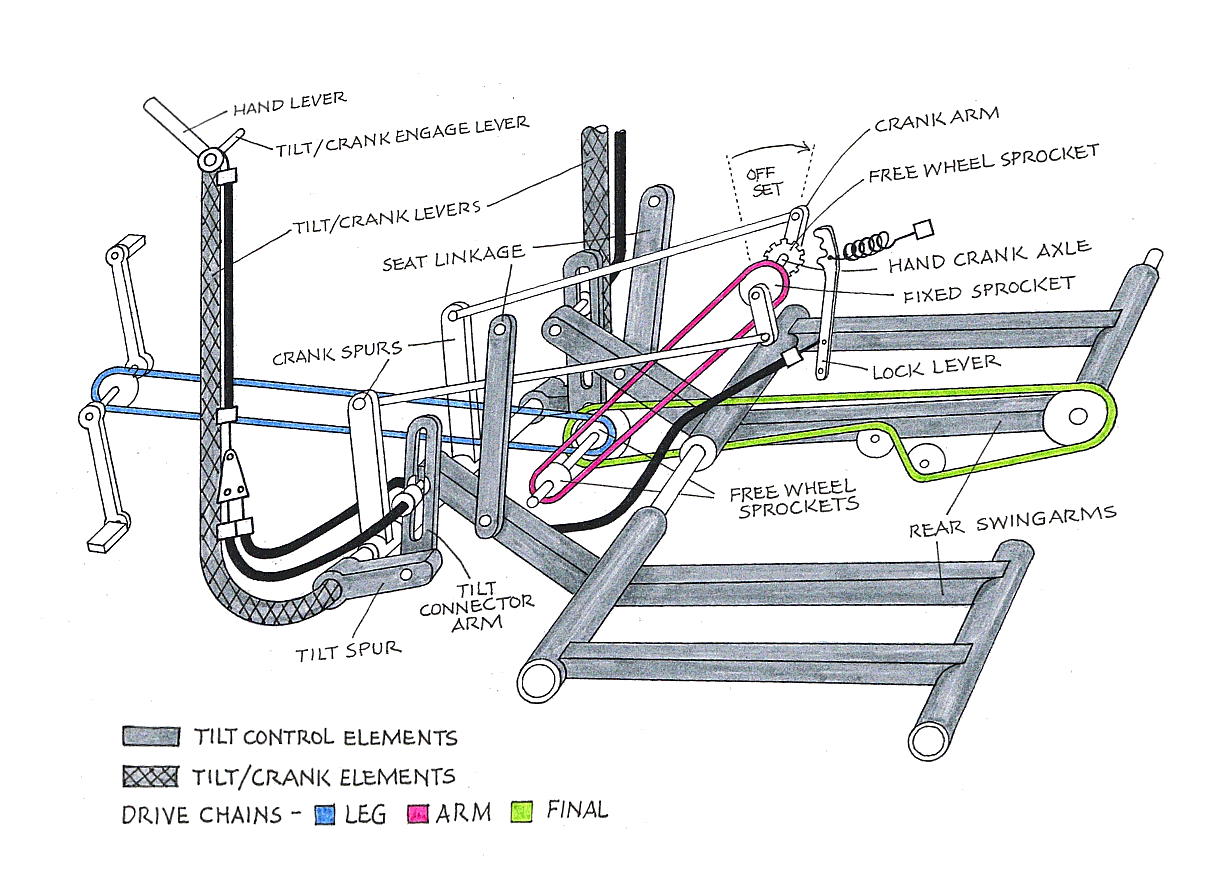 HAND LEVER
TILT/CRANK ENGAGE LEVER
CRANK ARM
FREE WHEEL SPROCKET
OFF
SET
TILT/CRANK LEVERS
SEAT LINKAGE
HAND CRANK AXLE
FIXED SPROCKET
CRANK SPURS
LOCK LEVER
FREE WHEEL
SPROCKETS
REAR SWINGARMS
TILT
CONNECTOR
ARM
TILT SPUR
TILT CONTROL ELEMENTS
TILT/CRANK ELEMENTS
DRIVE CHAINS - LEG ARM FINAL